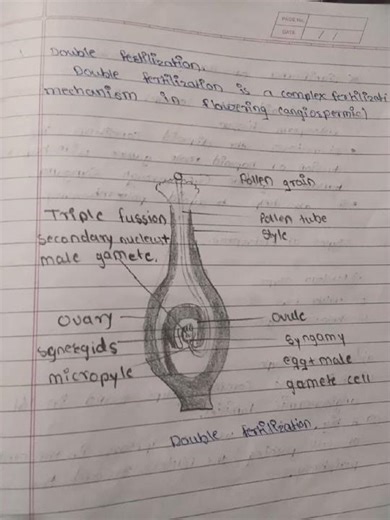 PAGE No.
DATE / /
Double fertilization.
Double fertilization is a complex fertilizati
mechanism in flowering (angiospermic)
Pollen grain
Triple fussion
secondary nucleus+
male gamete.
Pollen tube
style
Ovary
synergids
micropyle
Ovule
syngamy
egg+male
gamete cell
Double fertilization.